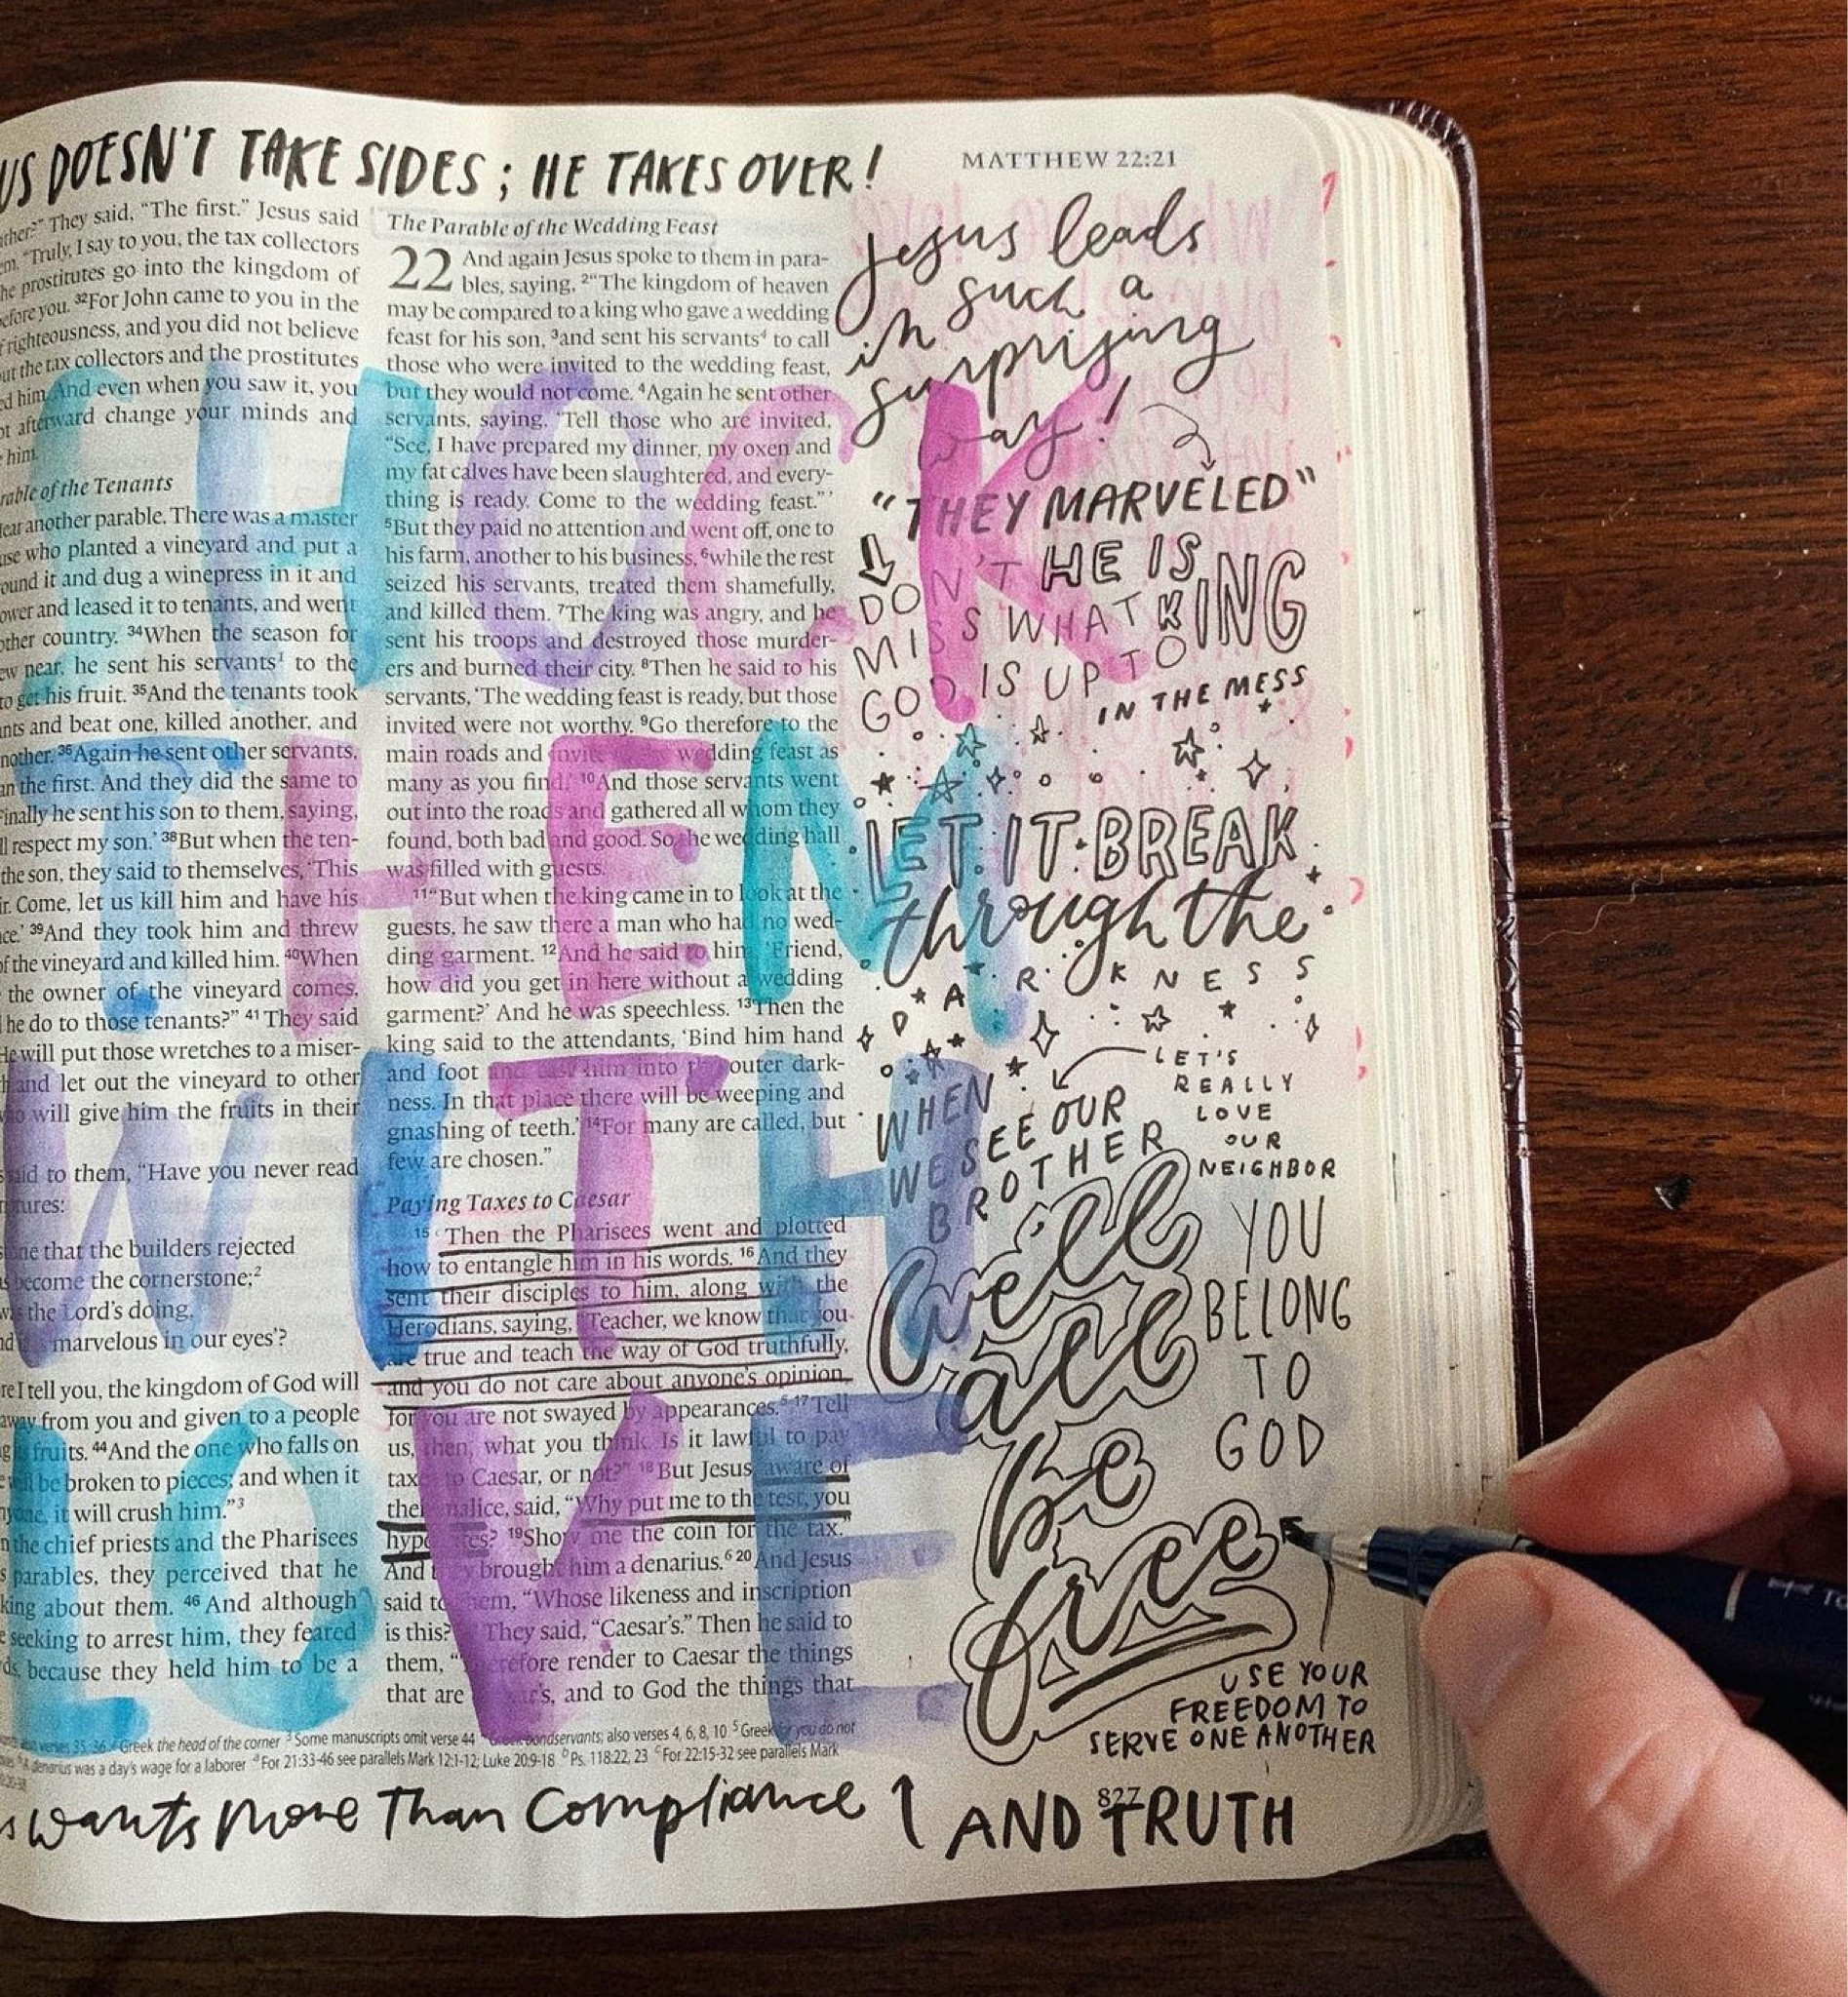 US DOESN'T TAKE SIDES; HE TAKES OVER!
MATTHEW 22:21
They said, "The first." Jesus said
"Truly, I say to you, the tax collectors
prostitutes go into the kingdom of
before you. 32For John came to you in the
righteousness, and you did not believe
the tax collectors and the prostitutes
him. And even when you saw it, you
afterward change your minds and
him.
of the Tenants
another parable. There was a master
who planted a vineyard and put a
it and dug a winepress in it and
and leased it to tenants, and went
other country. 34When the season for
near, he sent his servants1 to the
to get his fruit. 35And the tenants took
and beat one, killed another, and
another. 36Again he sent other servants,
the first. And they did the same to
Finally he sent his son to them, saying,
respect my son.' 38But when the ten-
the son, they said to themselves, 'This
Come, let us kill him and have his
39And they took him and threw
of the vineyard and killed him. 40When
the owner of the vineyard comes,
he do to those tenants?" 41They said
He will put those wretches to a miser-
and let out the vineyard to other
who will give him the fruits in their
said to them, "Have you never read
that the builders rejected
become the cornerstone;2
the Lord's doing,
marvelous in our eyes'?
I tell you, the kingdom of God will
away from you and given to a people
fruits. 44And the one who falls on
be broken to pieces; and when it
it will crush him."3
the chief priests and the Pharisees
parables, they perceived that he
about them. 46And although
seeking to arrest him, they feared
because they held him to be a
The Parable of the Wedding Feast
22 And again Jesus spoke to them in para-
bles, saying, 2"The kingdom of heaven
may be compared to a king who gave a wedding
feast for his son, 3and sent his servants4 to call
those who were invited to the wedding feast,
but they would not come. 4Again he sent other
servants, saying, 'Tell those who are invited,
"See, I have prepared my dinner, my oxen and
my fat calves have been slaughtered, and every-
thing is ready. Come to the wedding feast."'
5But they paid no attention and went off, one to
his farm, another to his business, 6while the rest
seized his servants, treated them shamefully,
and killed them. 7The king was angry, and he
sent his troops and destroyed those murder-
ers and burned their city. 8Then he said to his
servants, 'The wedding feast is ready, but those
invited were not worthy. 9Go therefore to the
main roads and invite wedding feast as
many as you find.' 10And those servants went
out into the roads and gathered all whom they
found, both bad and good. So the wedding hall
was filled with guests.
11"But when the king came in to look at the
guests, he saw there a man who had no wed-
ding garment. 12And he said to him, 'Friend,
how did you get in here without a wedding
garment?' And he was speechless. 13Then the
king said to the attendants, 'Bind him hand
and foot and cast him into the outer dark-
ness. In that place there will be weeping and
gnashing of teeth.' 14For many are called, but
few are chosen."
Paying Taxes to Caesar
15 Then the Pharisees went and plotted
how to entangle him in his words. 16And they
sent their disciples to him, along with the
Herodians, saying, "Teacher, we know that you
are true and teach the way of God truthfully,
and you do not care about anyone's opinion,
for you are not swayed by appearances.5 17Tell
us, then, what you think. Is it lawful to pay
taxes to Caesar, or not?" 18But Jesus, aware of
their malice, said, "Why put me to the test, you
hypocrites? 19Show me the coin for the tax."
And they brought him a denarius.6 20And Jesus
said to them, "Whose likeness and inscription
is this?" They said, "Caesar's." Then he said to
them, "Therefore render to Caesar the things
that are Caesar's, and to God the things that
SHOCK
THEM
WITH
LOVE
Jesus leads
in such a
surprising
way!
"THEY MARVELED"
DON'T
MISS WHAT
GOD IS UP TO
HE IS
KING
IN THE MESS
LET IT BREAK
through the
DARKNESS
WHEN
WE SEE OUR
BROTHER
LET'S
REALLY
LOVE
OUR
NEIGHBOR
we'll
all
be
free
YOU
BELONG
TO
GOD
USE YOUR
FREEDOM TO
SERVE ONE ANOTHER
verses 35, 36 2 Greek the head of the corner 3 Some manuscripts omit verse 44 4 bondservants; also verses 4, 6, 8, 10 5 Greek for you do not
denarius was a day's wage for a laborer d For 21:33-46 see parallels Mark 12:1-12; Luke 20:9-18 b Ps. 118:22, 23 c For 22:15-32 see parallels Mark
wants more Than Compliance
827
AND TRUTH